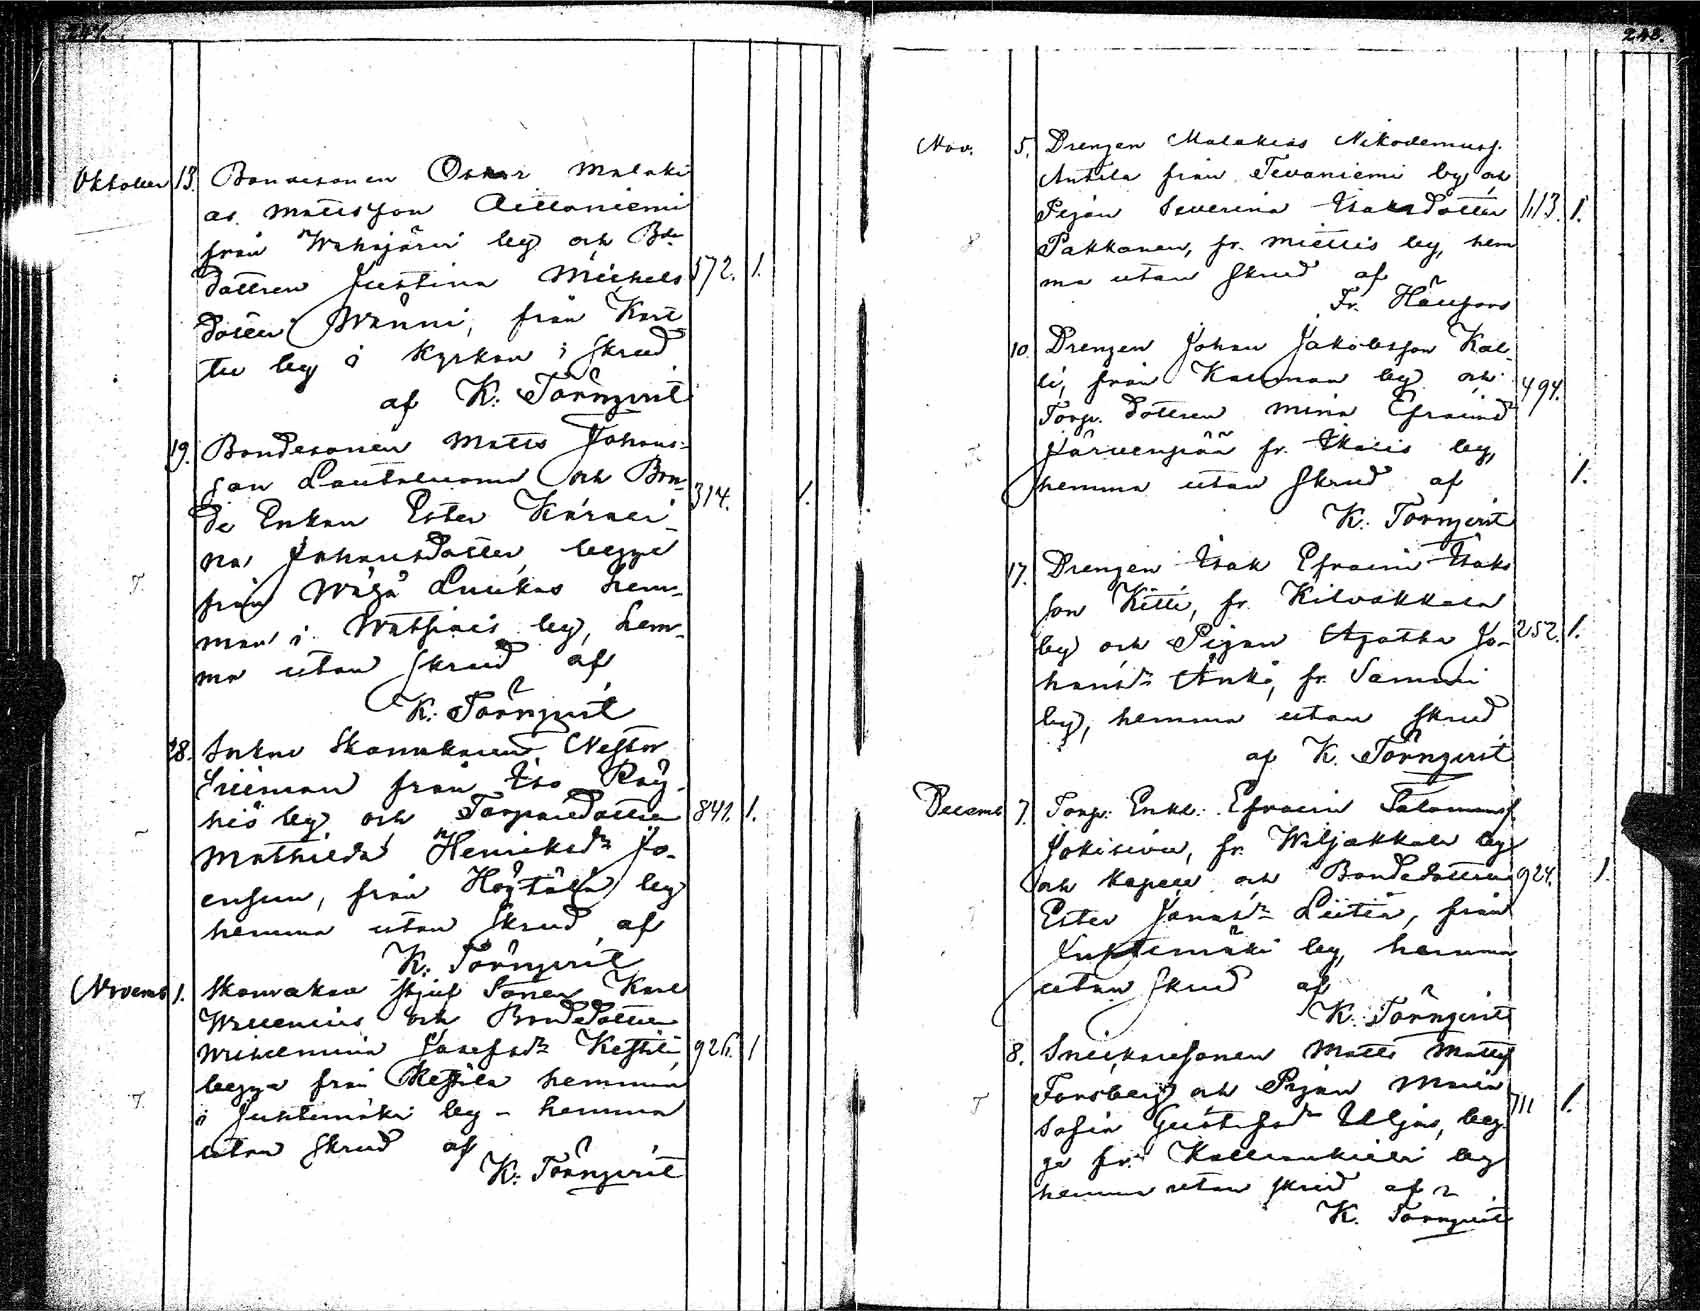 247.
Oktober 13. Bondesonen Oskar Malaki
as Mattsson Aittoniemi
från Wahojärvi by och Bde
dottren Justina Michels
dotter Männi, från Kort 572. 1.
tu by i Kyrkan i skrud
af K. Törnqvist
19. Bondesonen Matts Johans-
son Lautaluoma och Bon-
de Enkan Ester Karaci- 314. 1.
na Johansdotter, begge
från Luukas hem-
man i by, hem-
ma utan skrud af
K. Törnqvist
28. Enkm Skomakaren Nestor
från Iso Röy-
hiö by och Torparedottren 841. 1.
Mathilda Henriksdr Jo-
ensuu, från by
hemma utan skrud af
K. Törnqvist
Novemb 1. Skomakare Sonen Karl
Wallenius och Bondedottren
Wilhelmina Josefsdr Kestilä, 926. 1
begge från Kestilä hemman
i Juhtimäki by - hemma
utan skrud af
K. Törnqvist
248.
Nov. 5. Drengen Malakias Nikodemuss.
Anttila från Tevaniemi by och
Pigan Severina Isaksdotter 113. 1.
Pakkanen, fr. Miettis by, hem
ma utan skrud af
Fr. Hällfors
10. Drengen Johan Jakobsson Kal-
li, från Kallman by och 494.
Torp. dottren Mina Efraimd
Järvenpää fr. Ikalis by,
hemma utan skrud af 1.
K. Törnqvist
17. Drengen Isak Efraim Isaks
son Kitti, fr. Kilvakkala
by och Pigan Agatha Jo- 252. 1.
hansdr Ånki, fr. Sammi
by, hemma utan skrud
af K. Törnqvist
Decemb 7. Torp. Enkl. Efraim Salomonss
Jokisivu, fr. Wiljakkala by
och Kapell och Bondedottren 924. 1.
Ester Jonasdr Liitiä, från
Juhtimäki by, hemma
utan skrud af
K. Törnqvist
8. Snickaresonen Matts Mattss
Forsberg och Pigan Maria
Sofia Gustafsdr Uljas, beg- 711 1.
ge fr. by
hemma utan skrud af
K. Törnqvist